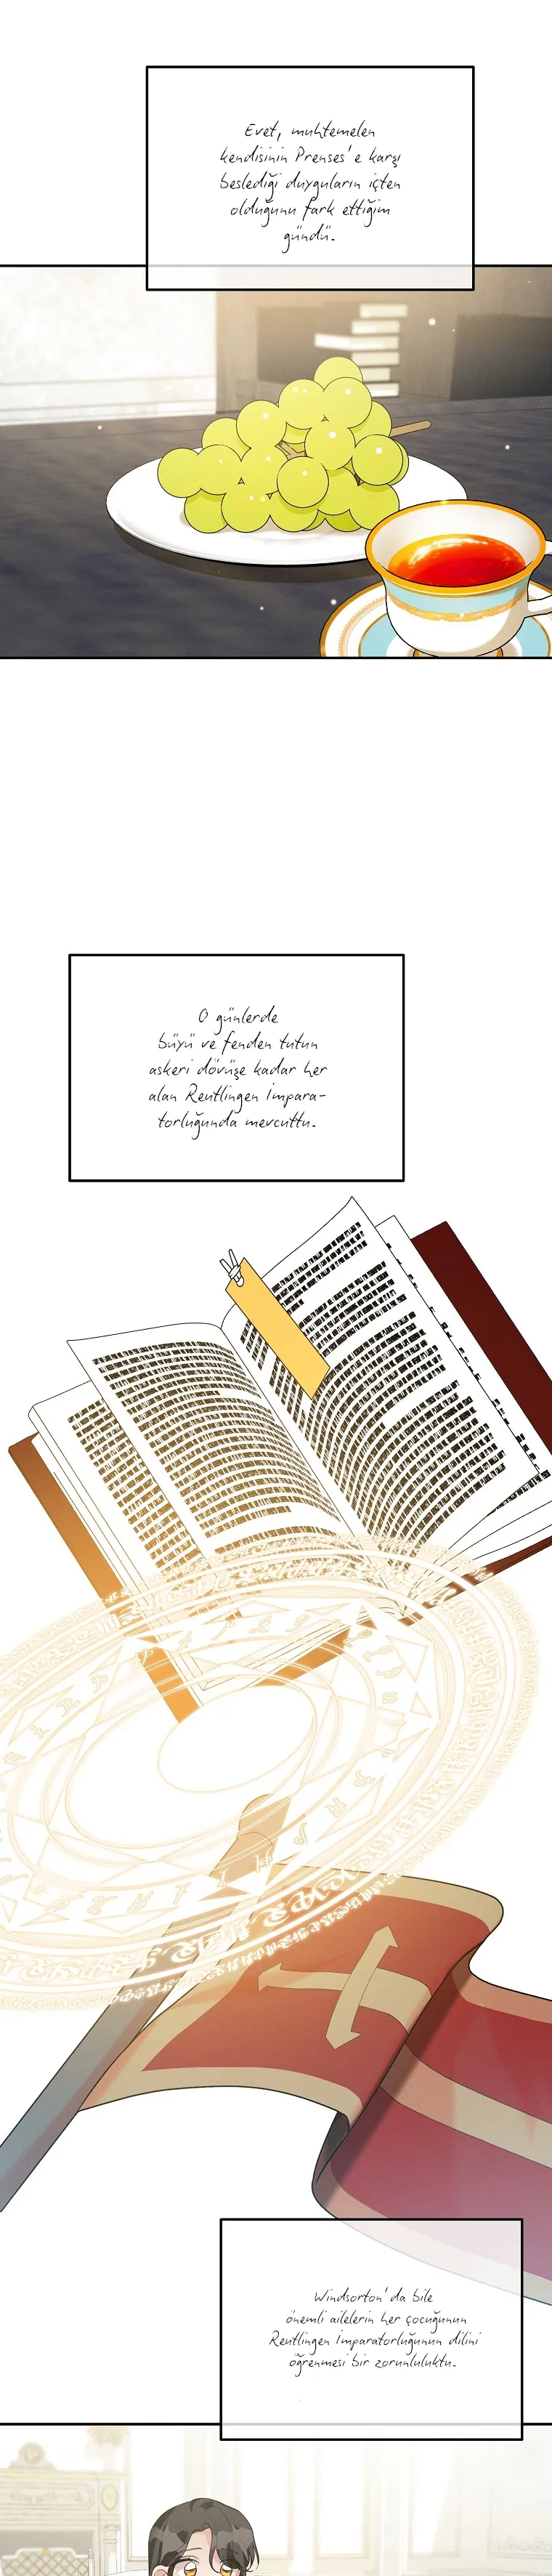 Evet, muhtemelen
kendisinin Prenses'e karşı
beslediği duyguların içten
olduğunu fark ettiğim
gündü.
O günlerde
büyü ve fenden tutun
askeri dövüşe kadar her
alan Reutlingen İmpara-
torluğunda mevcuttu.
Windsorton'da bile
önemli ailelerin her çocuğunun
Reutlingen İmparatorluğunun dilini
öğrenmesi bir zorunluluktu.